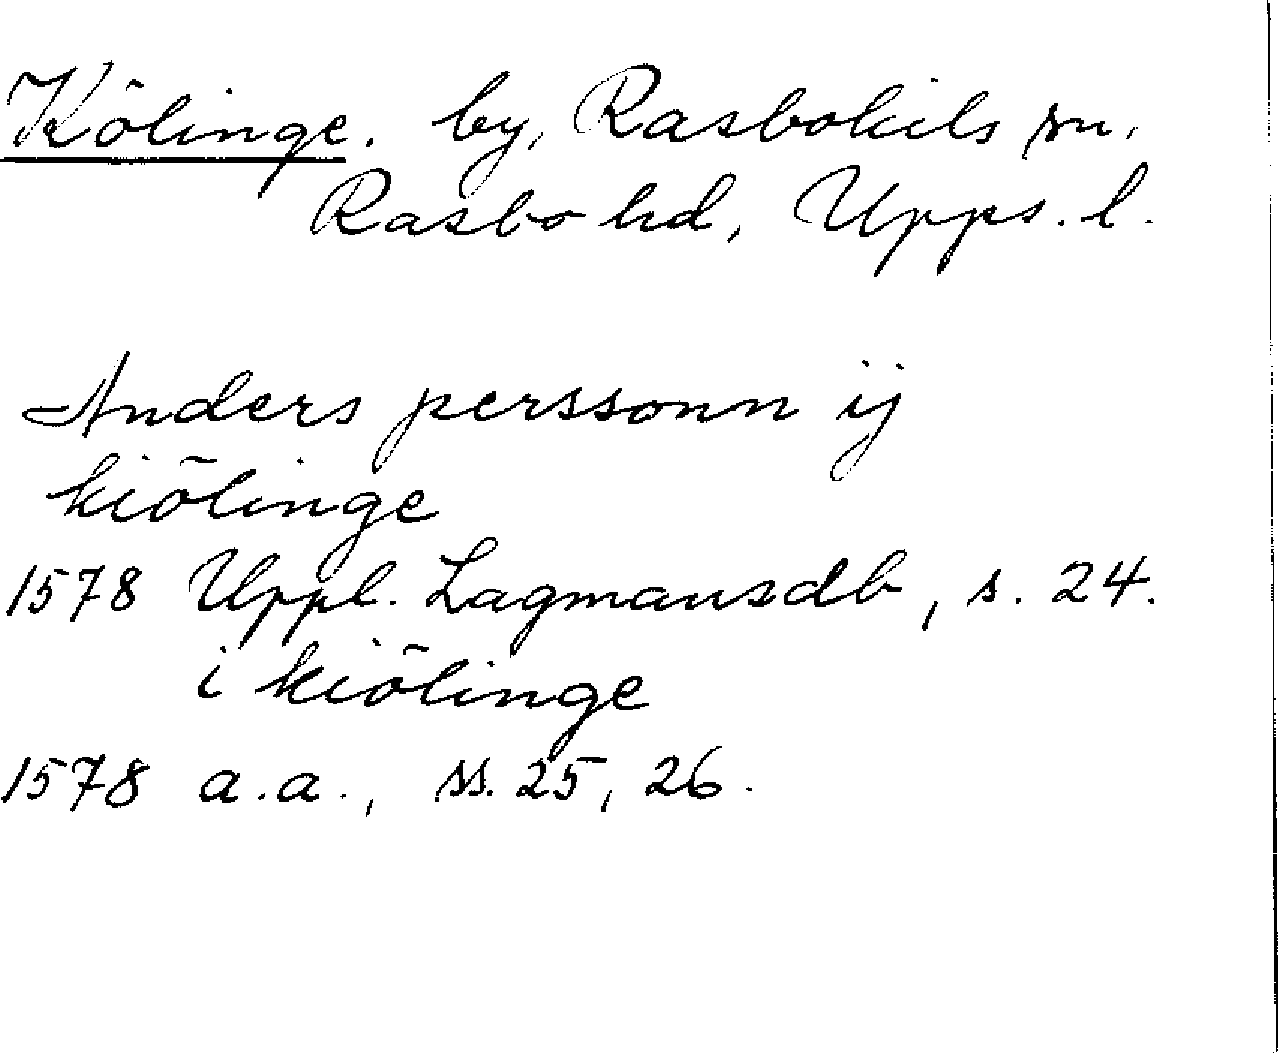 Kölinge. by, Rasbokils sn.
Rasbo hd, Upps. l.
Anders perssonn ij
kiölinge
1578 Uppl. Lagmansdb, s. 24.
i kiölinge
1578 a.a., ss. 25, 26.